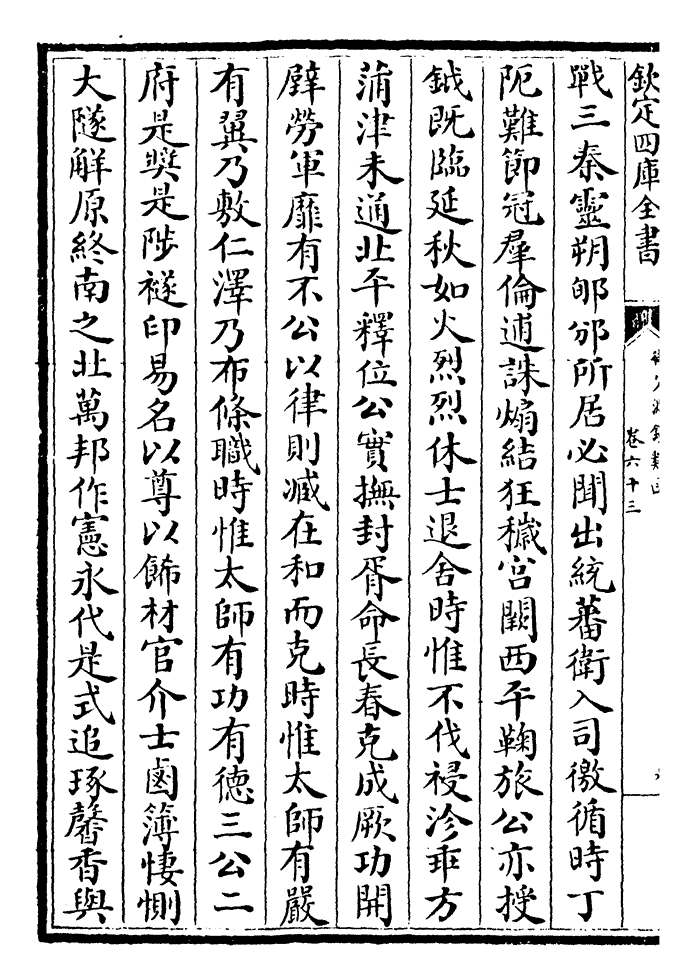 欽定四庫全書
卷六十三
戰三秦靈朔邠邠所居必聞出統蕃衛入司徼循時丁
阨難節冠羣倫逋誅煽結狂穢宫闕西平鞠旅公亦授
鉞既臨延秋如火烈烈休士退舍時惟不伐祲沴乖方
蒲津未通北平釋位公實撫封胥命長春克成厥功開
壁勞軍靡有不公以律則臧在和而克時惟太師有嚴
有翼乃敷仁澤乃布條職時惟太師有功有德三公二
府是奬是陟襚印易名以尊以飾材官介士鹵簿悽惻
大隧觧原終南之北萬邦作憲永代是式追琢馨香與